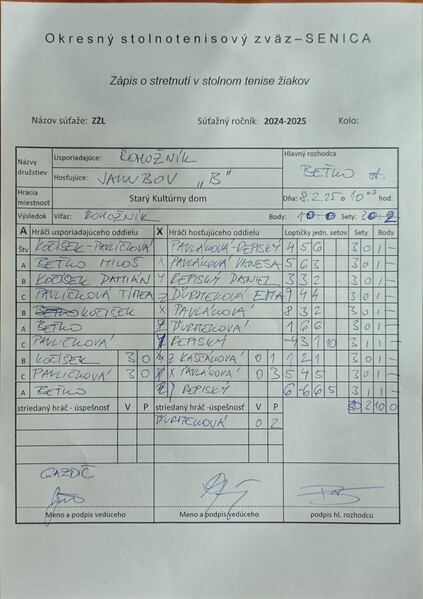 Okresný stolnotenisový zväz–SENICA
Zápis o stretnutí v stolnom tenise žiakov
Názov súťaže: ZŽL Súťažný ročník: 2024-2025 Kolo:
Názvy družstiev Usporiadajúce: ROHOŽNÍK Hlavný rozhodca
Hosťujúce: JAKUBOV „B" BEŤKO st.
Hracia miestnosť Starý Kultúrny dom Dňa: 8.2.25 o 10⁰⁰ hod.
Výsledok Víťaz: ROHOŽNÍK Body: 10:0 Sety: 30:2
A Hráči usporiadajúceho oddielu X Hráči hosťujúceho oddielu Loptičky jedn. setov Sety Body
Štv KOČIŠEK-PAVLIČKOVÁ PAVLÁKOVÁ-REPISKÝ 4 5 6 3 0 1 –
A BEŤKO MILOŠ X PAVLÁKOVÁ VANESA 5 6 3 3 0 1 –
B KOČIŠEK DAMIÁN Y REPISKÝ DANIEL 3 3 2 3 0 1 –
C PAVLIČKOVÁ TIMEA Z ĎURTEKOVÁ EMA 9 4 4 3 0 1 –
B KOČIŠEK X PAVLÁKOVÁ 8 3 2 3 0 1 –
A BEŤKO Z ĎURTEKOVÁ 1 6 6 3 0 1 –
C PAVLIČKOVÁ Y REPISKÝ -4 3 1 10 3 1 1 –
B KOČIŠEK 3 0 Z 0 1 1 2 1 3 0 1 –
C PAVLIČKOVÁ 3 0 X PAVLÁKOVÁ 0 3 5 4 5 3 0 1 –
A BEŤKO Y REPISKÝ 6 -6 6 5 3 1 1 –
striedaný hráč - úspešnosť V P striedaný hráč - úspešnosť V P 30 2 10 0
ĎURTEKOVÁ 0 2
GAZDIČ
Meno a podpis vedúceho Meno a podpis vedúceho podpis hl. rozhodcu